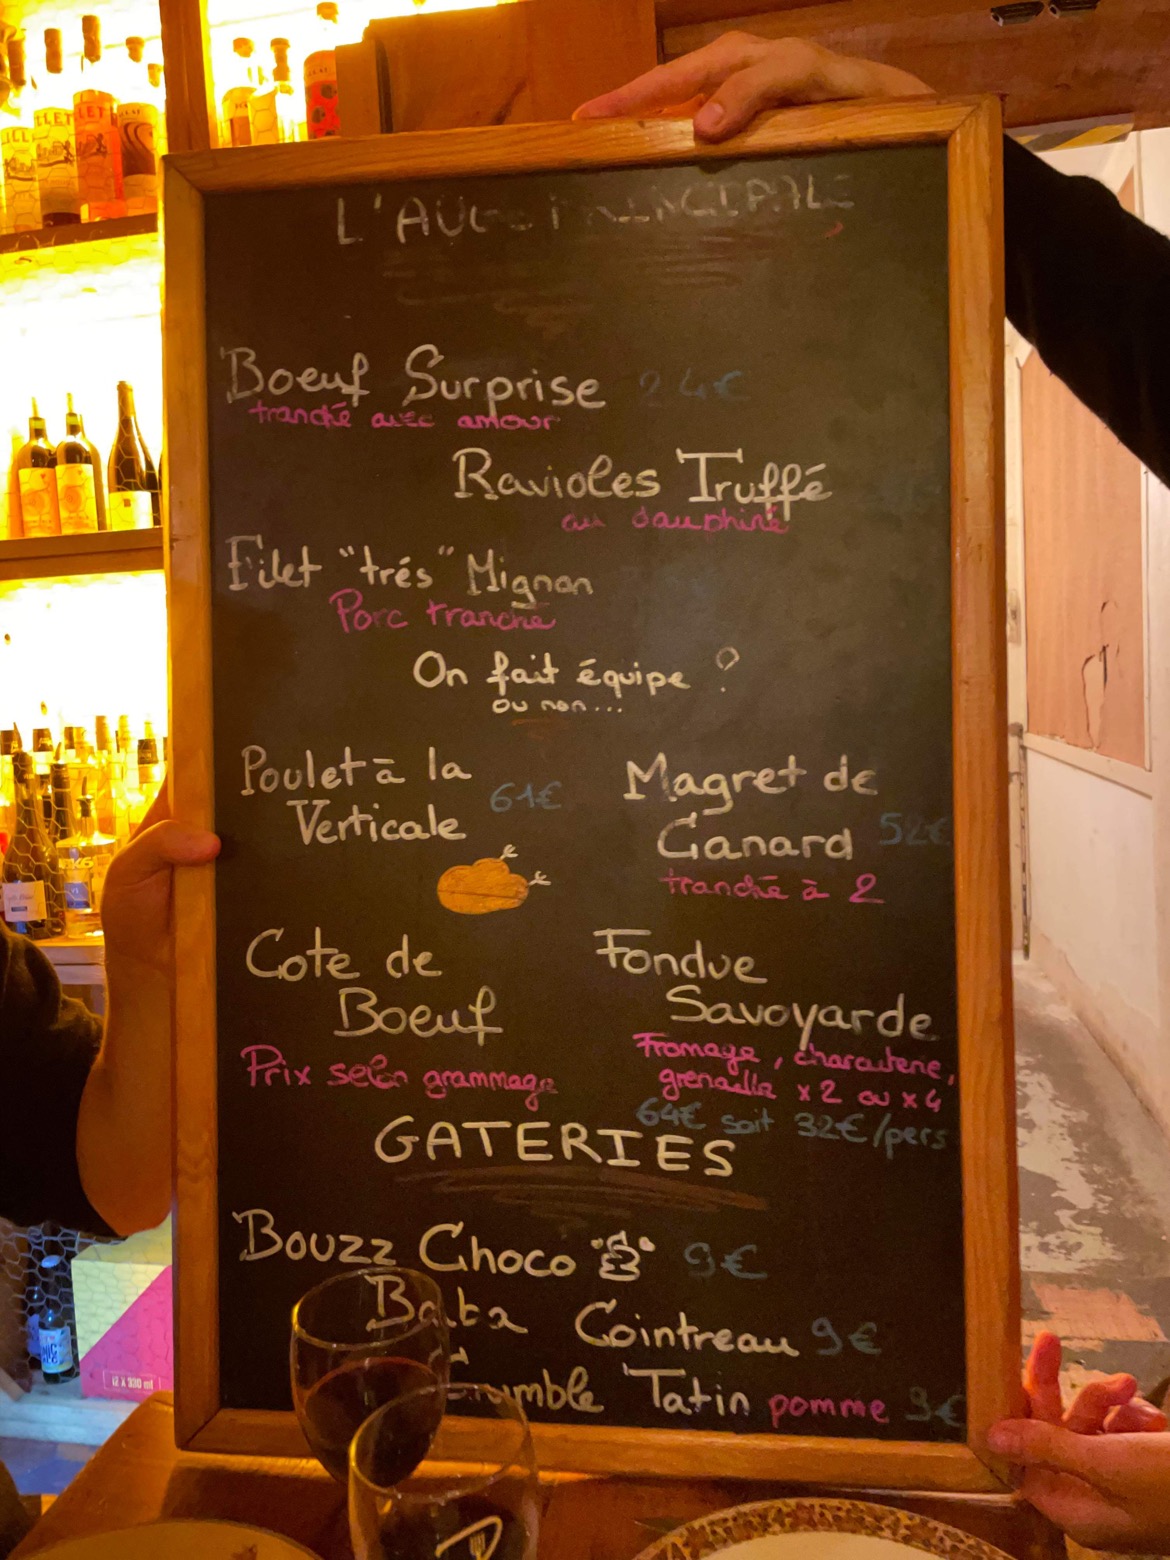 L'AUGE PRINCIPALE
Boeuf Surprise 24€
tranché avec amour
Ravioles Truffé
au dauphiné
Filet "trés" Mignon
Porc tranché
On fait équipe ?
ou non...
Poulet à la
Verticale 61€
Magret de
Canard 52€
tranché à 2
Cote de
Boeuf
Prix selon grammage
Fondue
Savoyarde
Fromage, charcuterie,
grenaille x 2 ou x 4
64€ soit 32€/pers
GATERIES
Bouzz Choco 9€
Baba Cointreau 9€
Crumble Tatin pomme 9€
12 X 330 ml